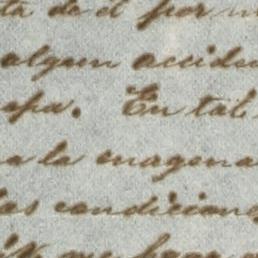 ta de el por
algun accide
apa. En tal
a la enagena
las condicion